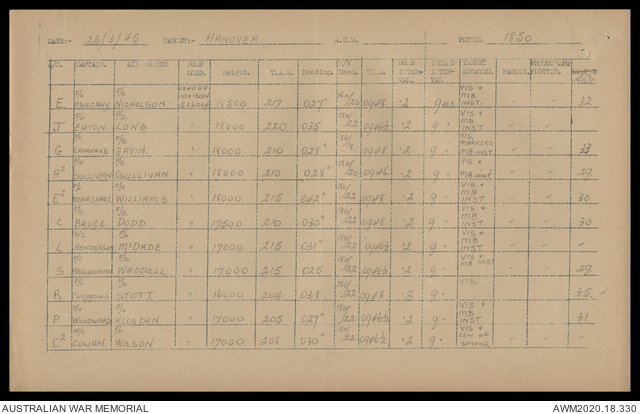 DATE:- 25/3/45 TARGET:- HANOVER A.U.W. PETROL 1850
A/C. CAPTAIN. AIR BOMBER BOMB LOAD. Height. T.A.S. Heading. W/V Used. TIME. BOMB INTERVAL. TARGET LOCATED. FAILURES. PHOTOGRAPH PLOTTED.
E MULCAHY NICHOLSON 18500 217 027° /20 0948 .2 9 VIS + MB INST. 32
J EATON LONG " 18000 220 035° /22 0946½ .2 9 " VIS + MB INST - -
G LANGCAKE GAVIN. " 18000 210 028° /18 0948 .2 9 " VIS, MARKERS MB INST - - 33
A² SULLIVAN O'SULLIVAN " 18000 210 028° /20 0946 .2 9 " VIS + MB INST. - - 29
E² MARSHALL WILLIAMS " 18000 215 042° /22 0948 .2 9 " VIS + MB INST. - - 30
C BRUCE DODD " 17500 210 030° /22 0948 .2 9 " VIS + MB INST - - 30
L HENDERSON McDADE " 17000 215 031° /22 0946½ .2 9 " VIS + MB INST - -
S WADDELL " 17000 215 025 /22 0946½ .2 9 " VIS + MB INST - - 29
R CHOPPING STOTT " 16000 204 038 /22 0948 .2 9 " VIS. - - 35
P WOODWARD KLOEDEN " 17000 205 027° /22 0946½ .2 9 " VIS + MB INST - - 31
C² COWAN WILSON " 17000 208 030° /22 0946½ .2 9 " VIS + SMOKE - -
AUSTRALIAN WAR MEMORIAL AWM2020.18.330